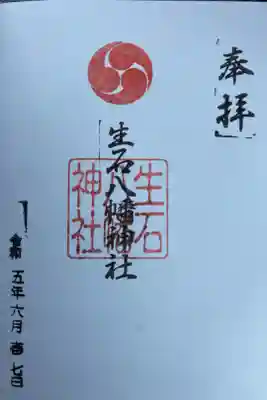 奉拝
生石八幡神社
生石
神社
令和五年六月 七日